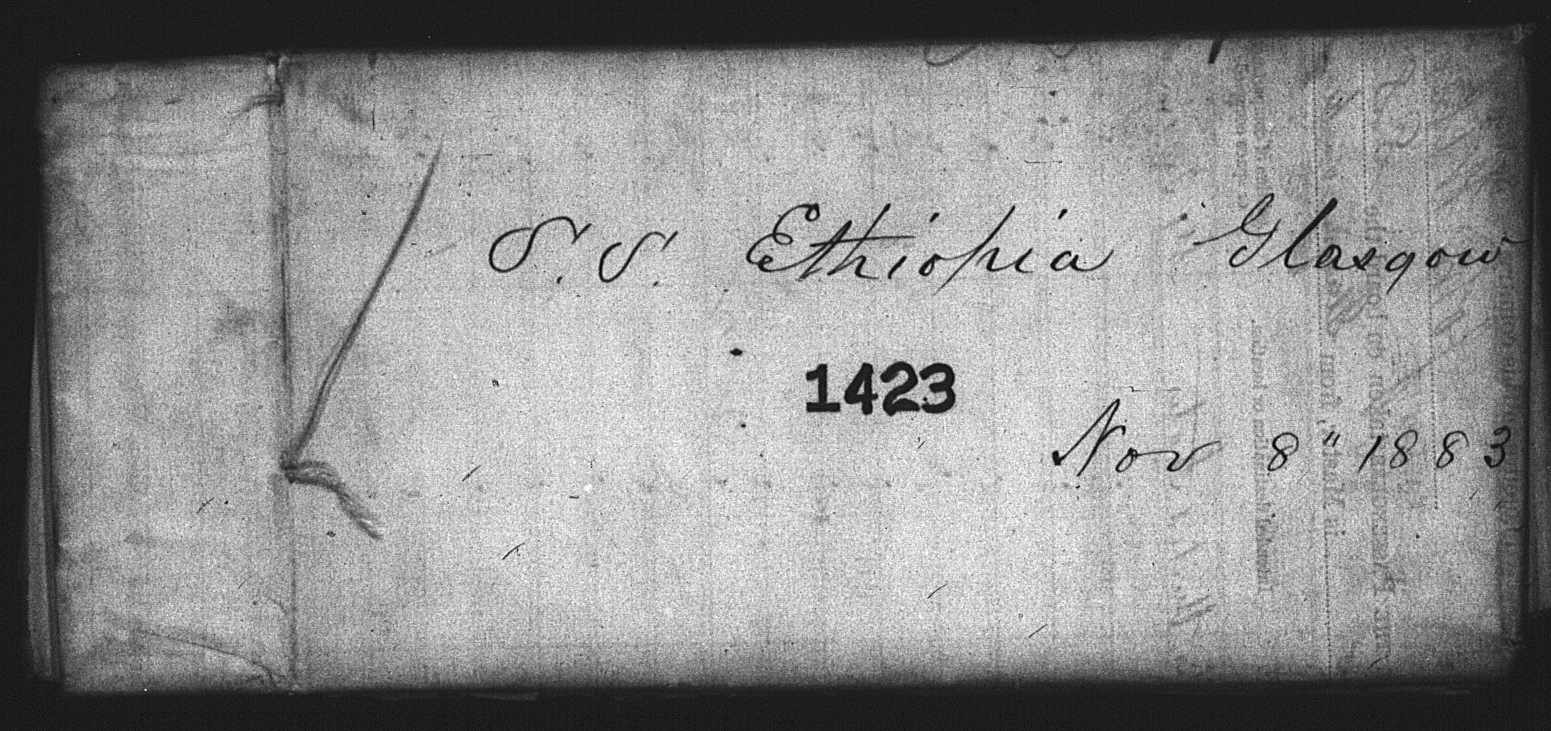 S.S. Ethiopia Glasgow
1423
Nov 8" 1883